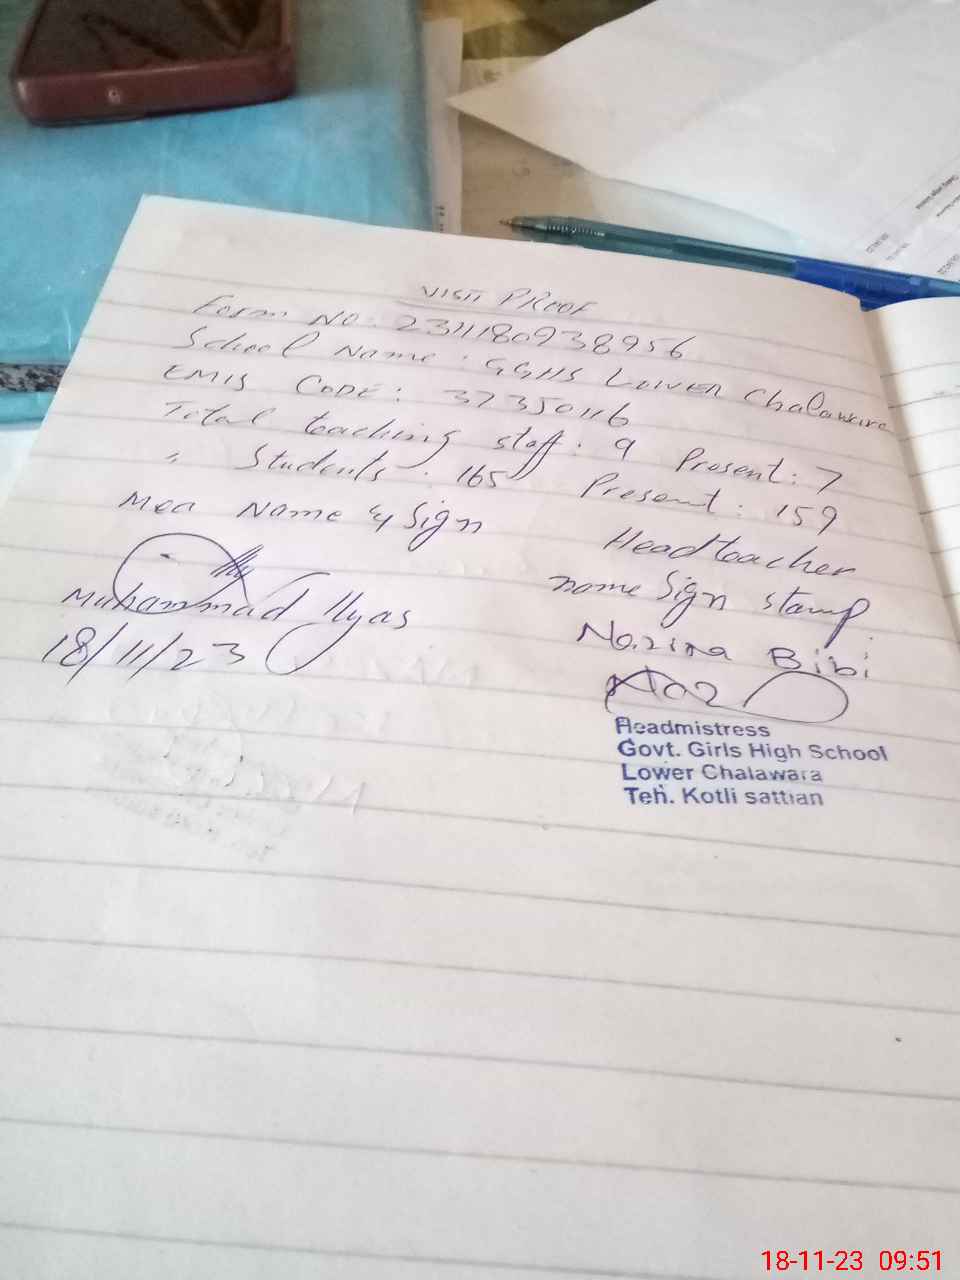 VISIT PROOF
Form No: 2311180938956
School Name: GGHS Lower Chalawara
EMIS CODE: 37350116
Total teaching staff: 9 Present: 7
" Students: 165 Present: 159
Mea Name & Sign
Headteacher
name Sign stamp
Muhammad Ilyas
18/11/23
Nazira Bibi
Naz
Headmistress
Govt. Girls High School
Lower Chalawara
Teh. Kotli sattian
18-11-23 09:51